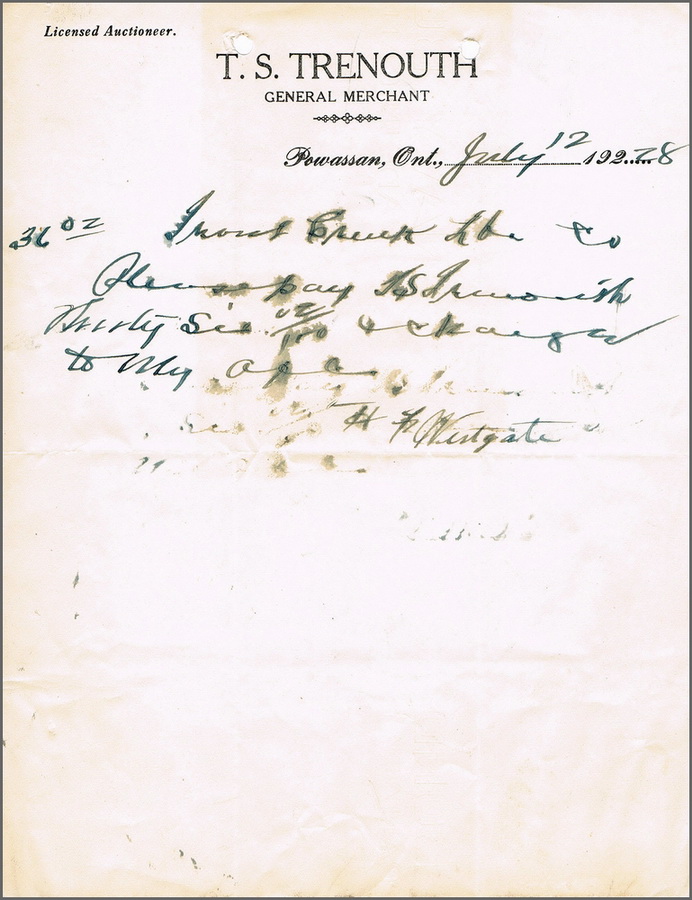 Licensed Auctioneer.
T. S. TRENOUTH
GENERAL MERCHANT
Powassan, Ont., July 12 192 28
36 02 Trout Creek Lbr Co
Please pay T S Trenouth
Thirty Six 02/100 & charge
to My a/c
H F Westgate